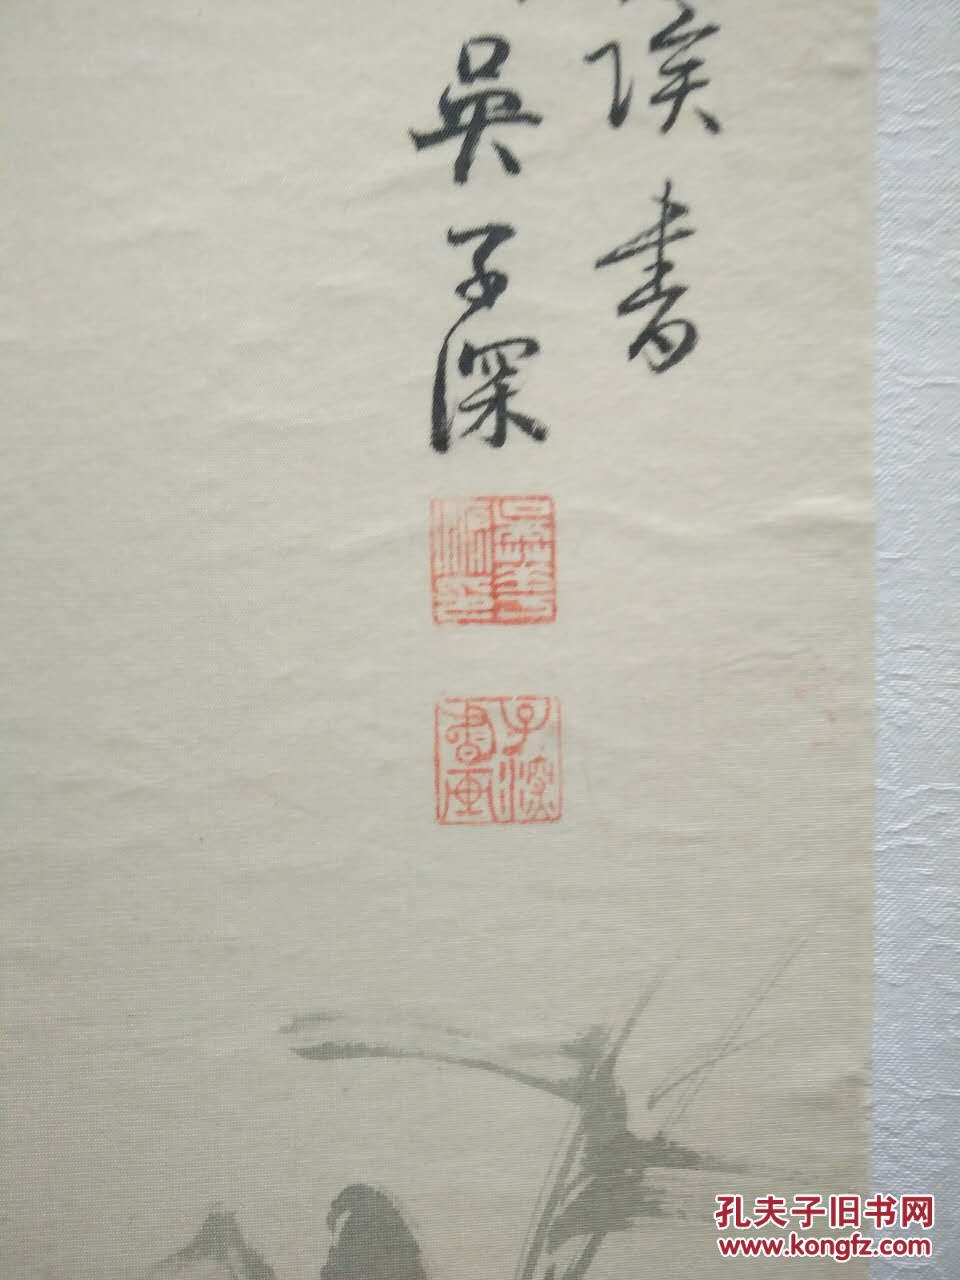 書
吳子深
吳華源印
子深書画
孔夫子旧书网
www.kongfz.com